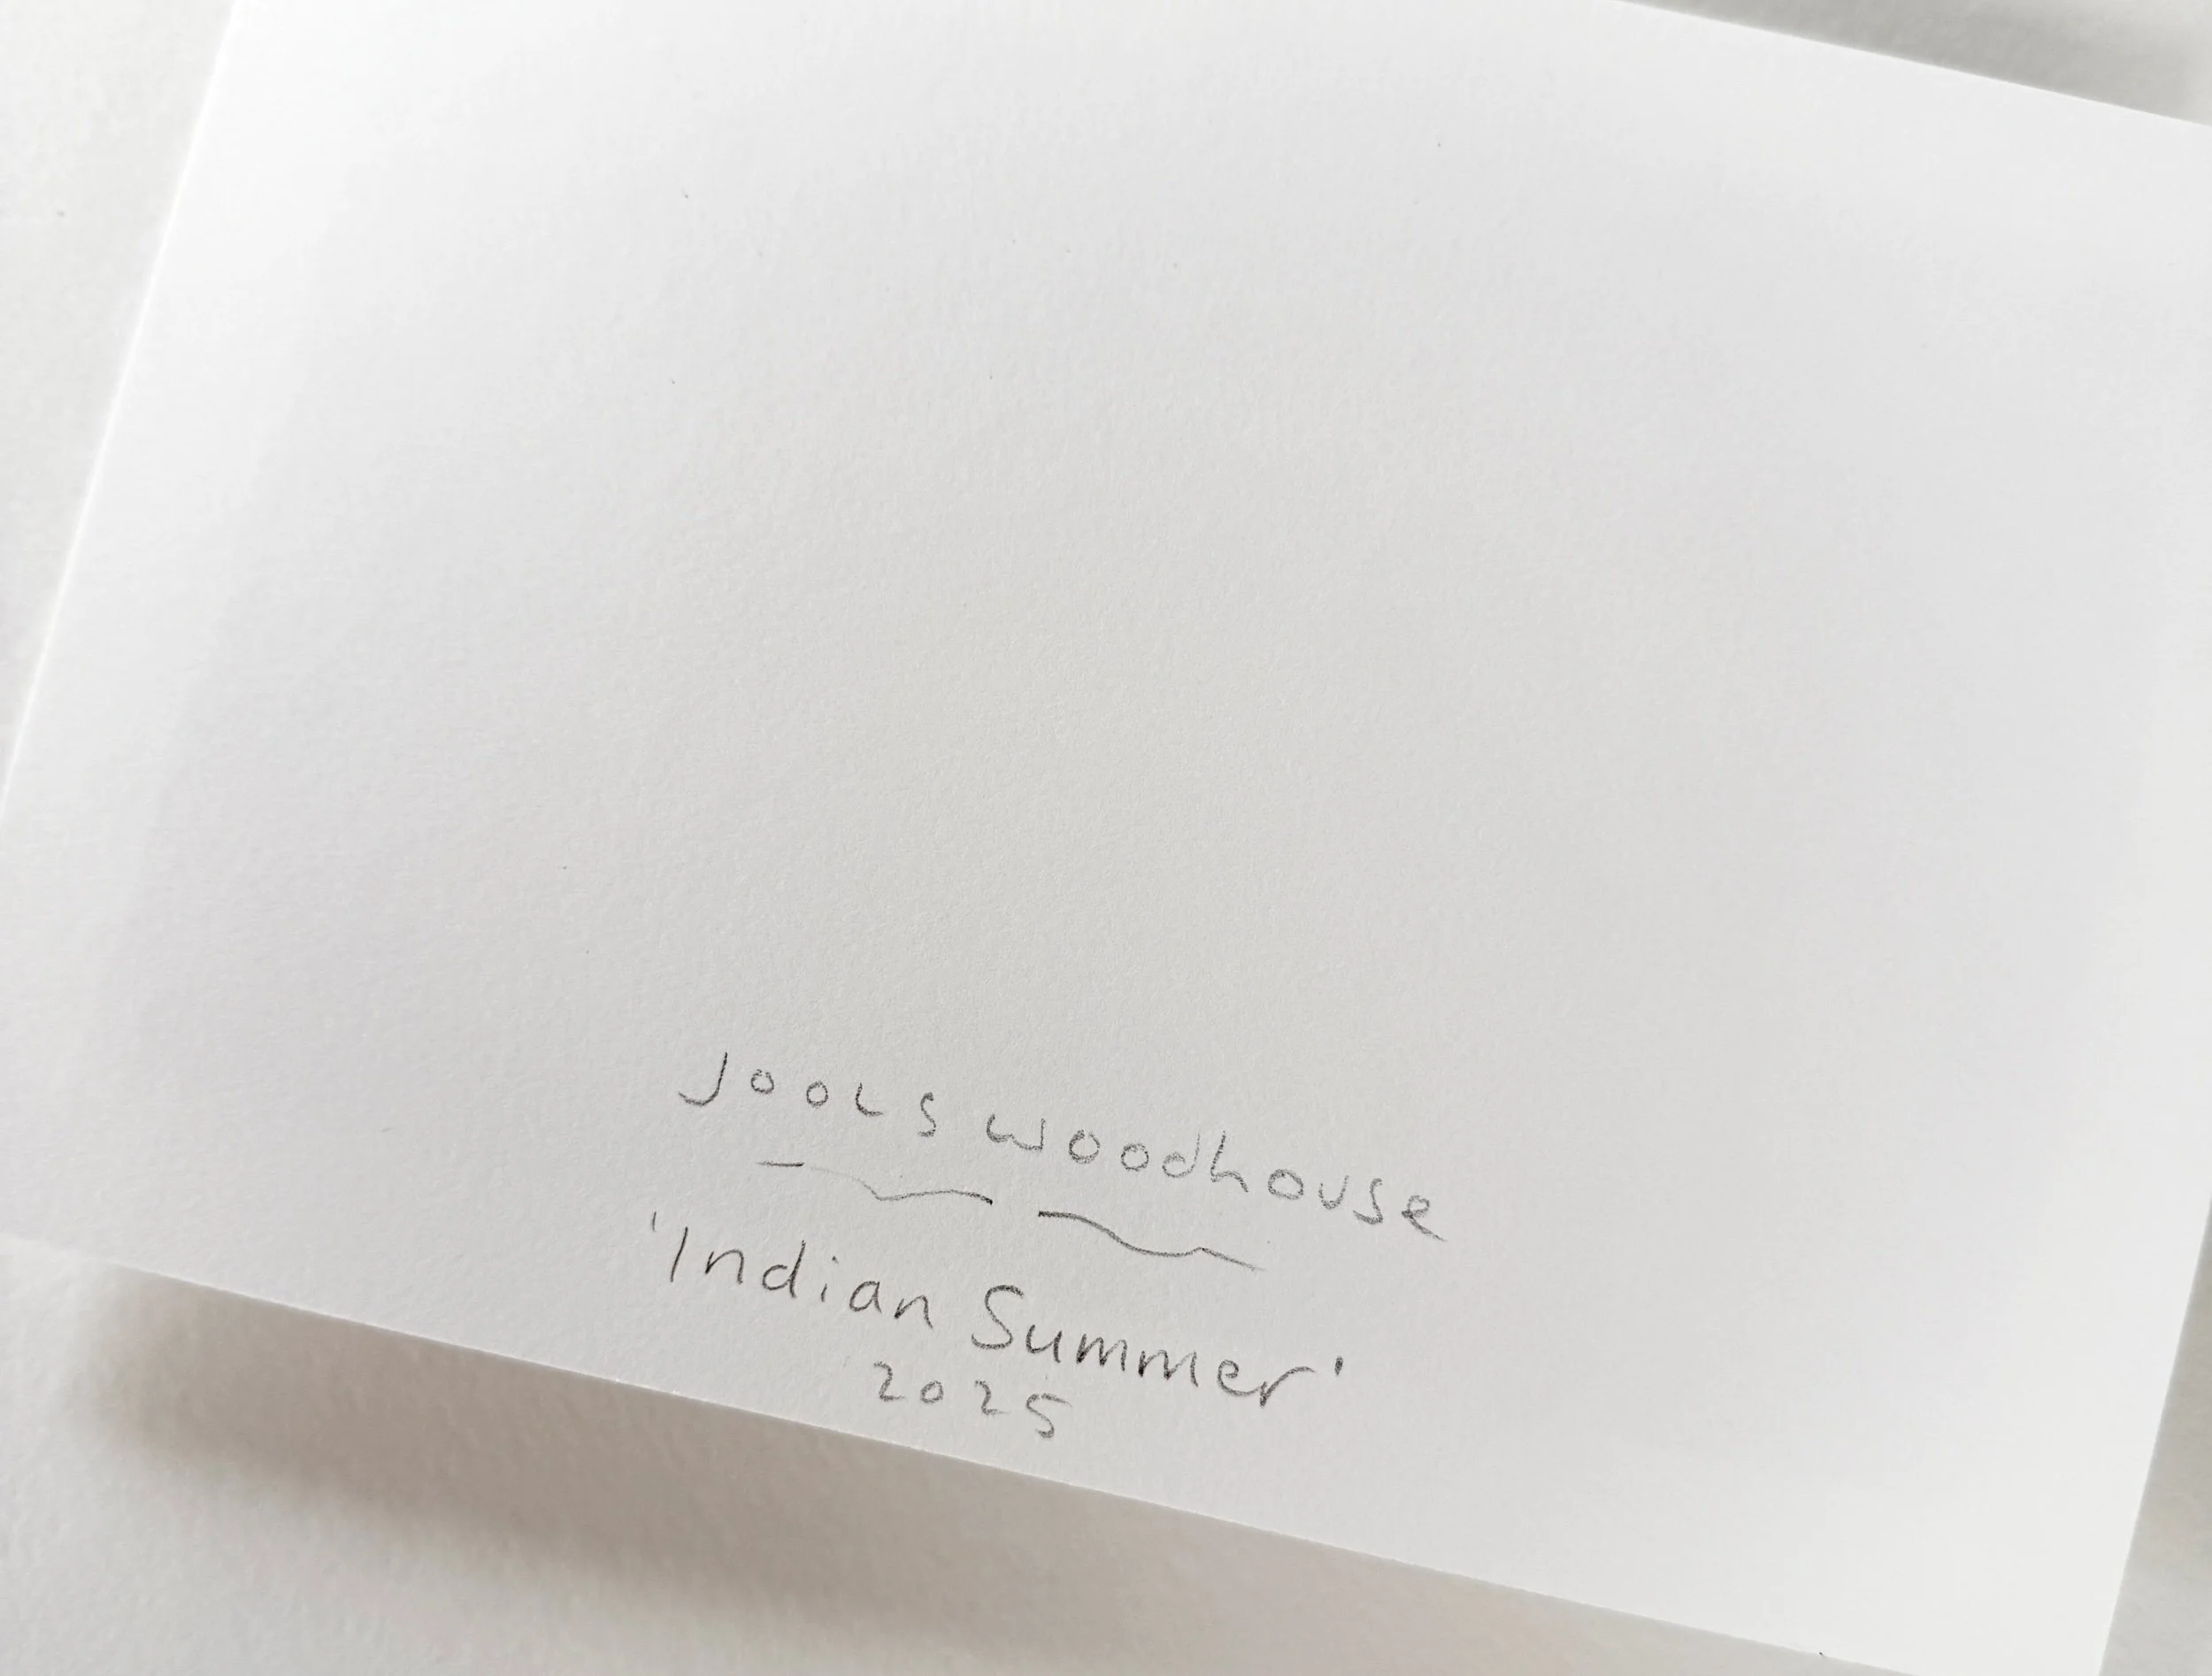 Jools woodhouse
'Indian Summer'
2025